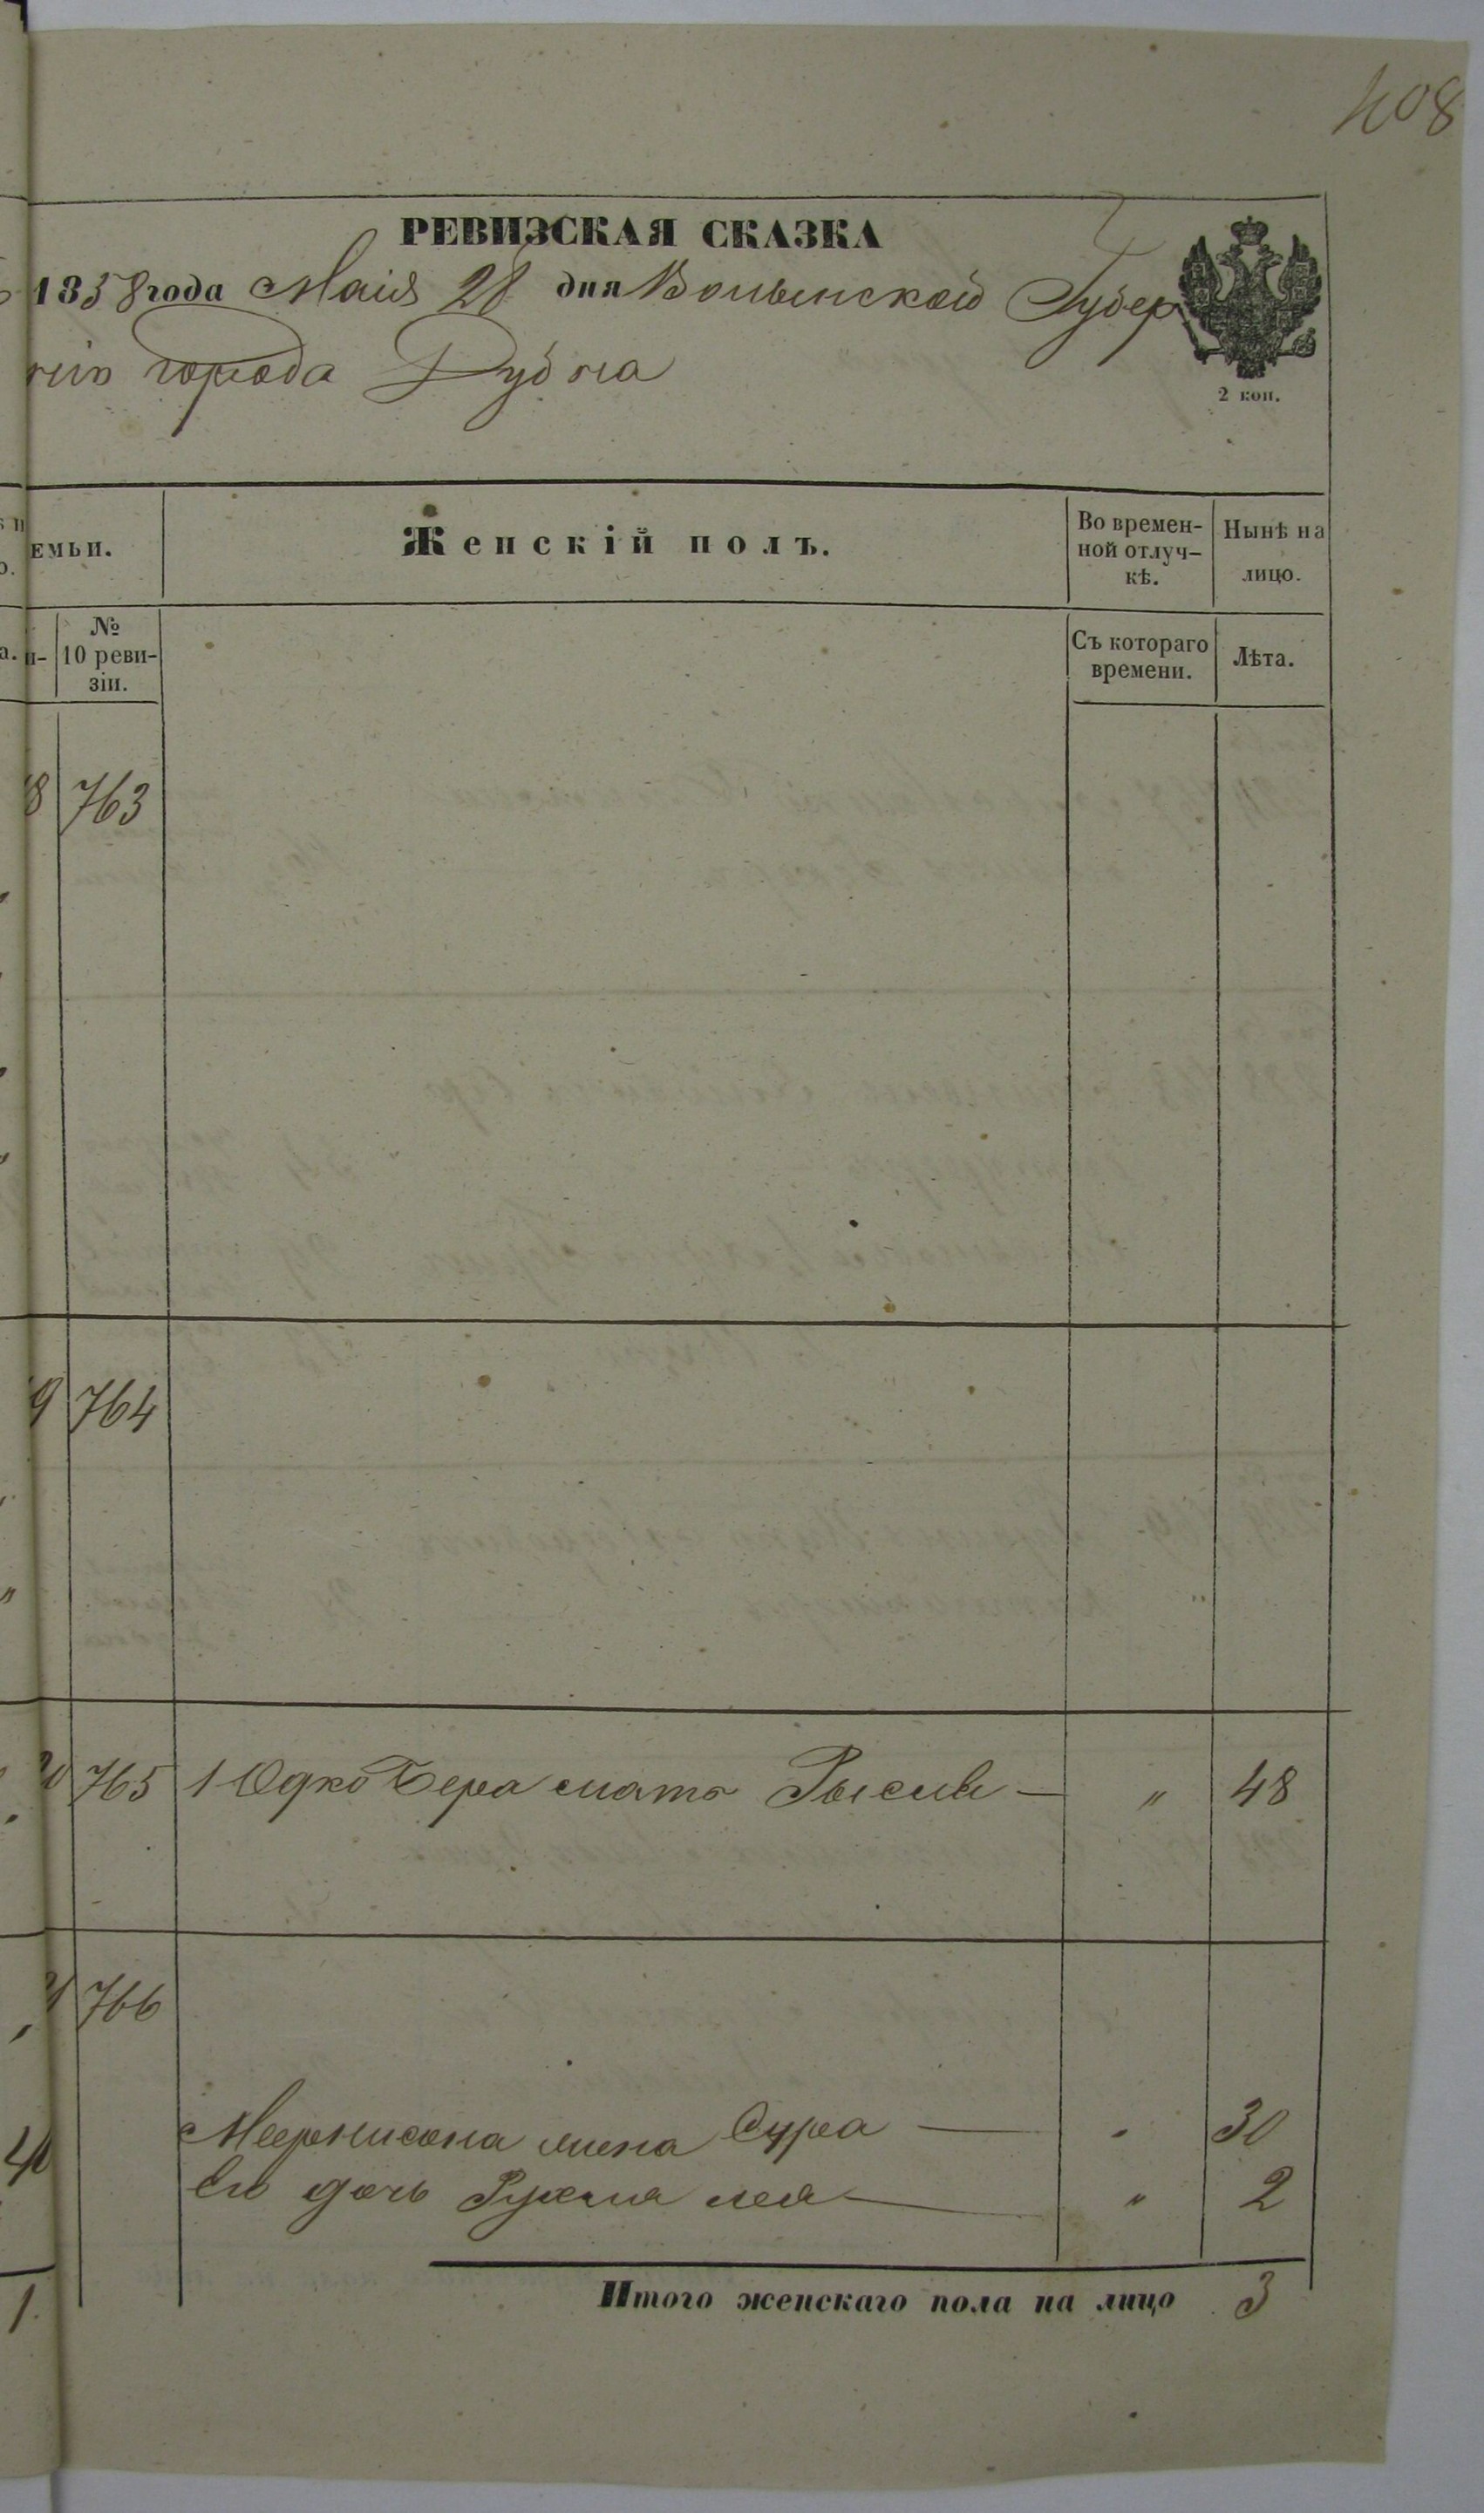 408
РЕВИЗСКАЯ СКАЗКА
1858 года Маія 28 дня Волынской Губер
ніи города Дубна
2 коп.
ЕМЬИ.
Женскій полъ.
Во времен-
ной отлуч-
кѣ.
Нынѣ на
лицо.
№
10 реви-
зіи.
Съ котораго
времени.
Лѣта.
8 763
9 764
765 1 Юдко Бера мать Рысля — " 48
766
жена Сура — " 30
Его дочь Рухля Лея — " 2
Итого женскаго пола на лицо 3